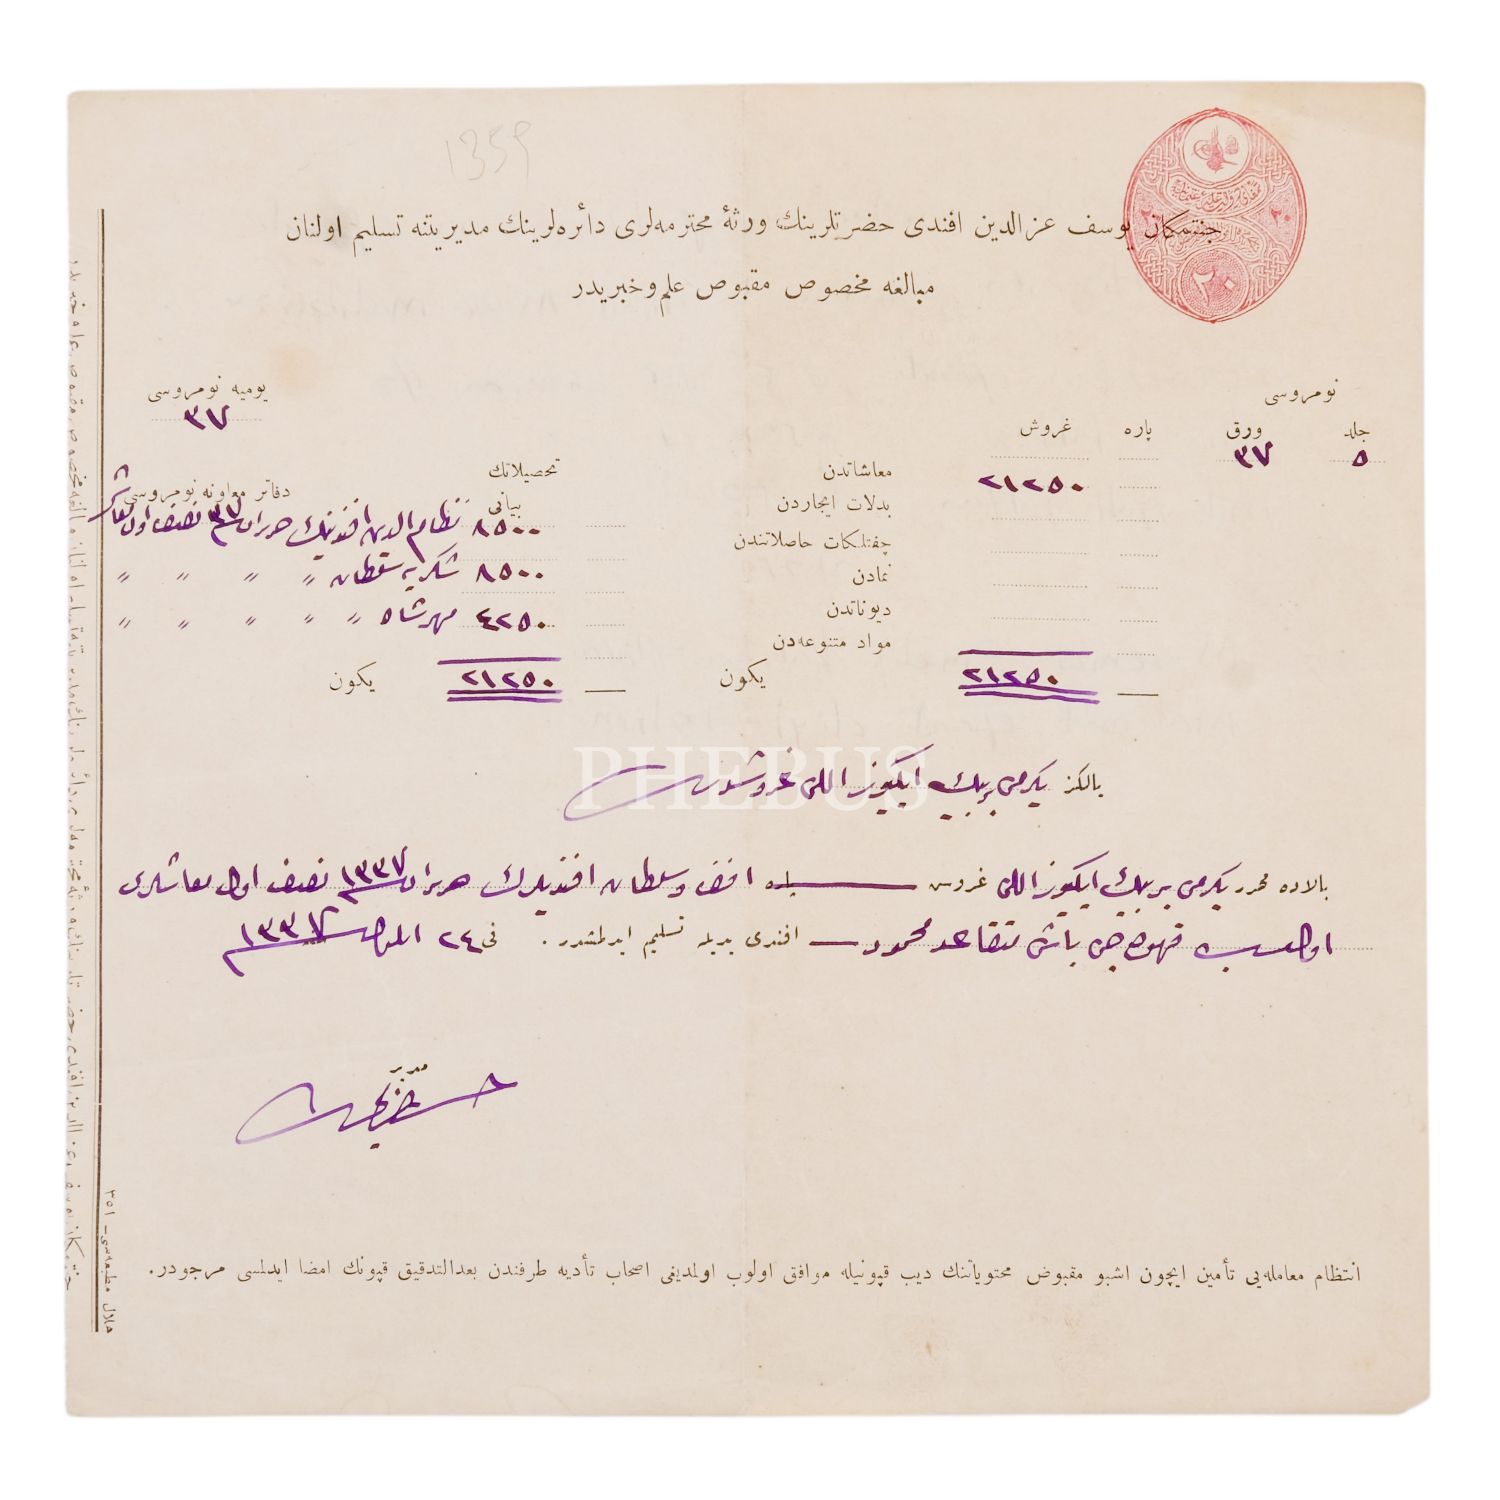 1359
جنتمكان يوسف عزالدين افندی حضرتلرينك ورثهٔ محترمه‌لری دائره‌لرينك مديريتنه تسليم اولنان
مبالغه مخصوص مقبوض علم و خبريدر
٢٠ ٢٠
٢٠
نومروسی
جلد ورق
٥ ٣٧
پاره غروش
يوميه نومروسی
٣٧
معاشاتدن ٢١٢٥٠
بدلات ايجاردن
چفتلكات حاصلاتندن
نمادن
ديوناتدن
مواد متنوعه‌دن
يكون ٢١٢٥٠
تحصيلاتك بيانی دفاتر معاونه نومروسی
٨٥٠٠ نظام الدين افندينك حزيران ٣٧ نصف اول معاشی
٨٥٠٠ شكريه سلطان 〃 〃 〃 〃
٤٢٥٠ مهرشاه 〃 〃 〃 〃 〃
٢١٢٥٠ يكون
PHEBUS
يالكز يكرمی بربيك ايكيوز اللی غروشدر
بالاده محرر يكرمی بربيك ايكيوز اللی غروش پاره افندی و سلطان افنديلرك حزيران ١٣٣٧ نصف اول معاشلری
اولمسيله قهوه‌جی باشی متقاعد محمود افندی يديله تسليم ايدلمشدر . فی ٢٤ ايلول ١٣٣٧
مدير
انتظام معامله‌يی تأمين ايچون اشبو مقبوض محتوياتنك ديب قپونيله موافق اولوب اولمديغی اصحاب تأديه طرفندن بعدالتدقيق قپونك امضا ايدلمسی مرجودر.
هلال مطبعه‌سی ــ ٣٥١